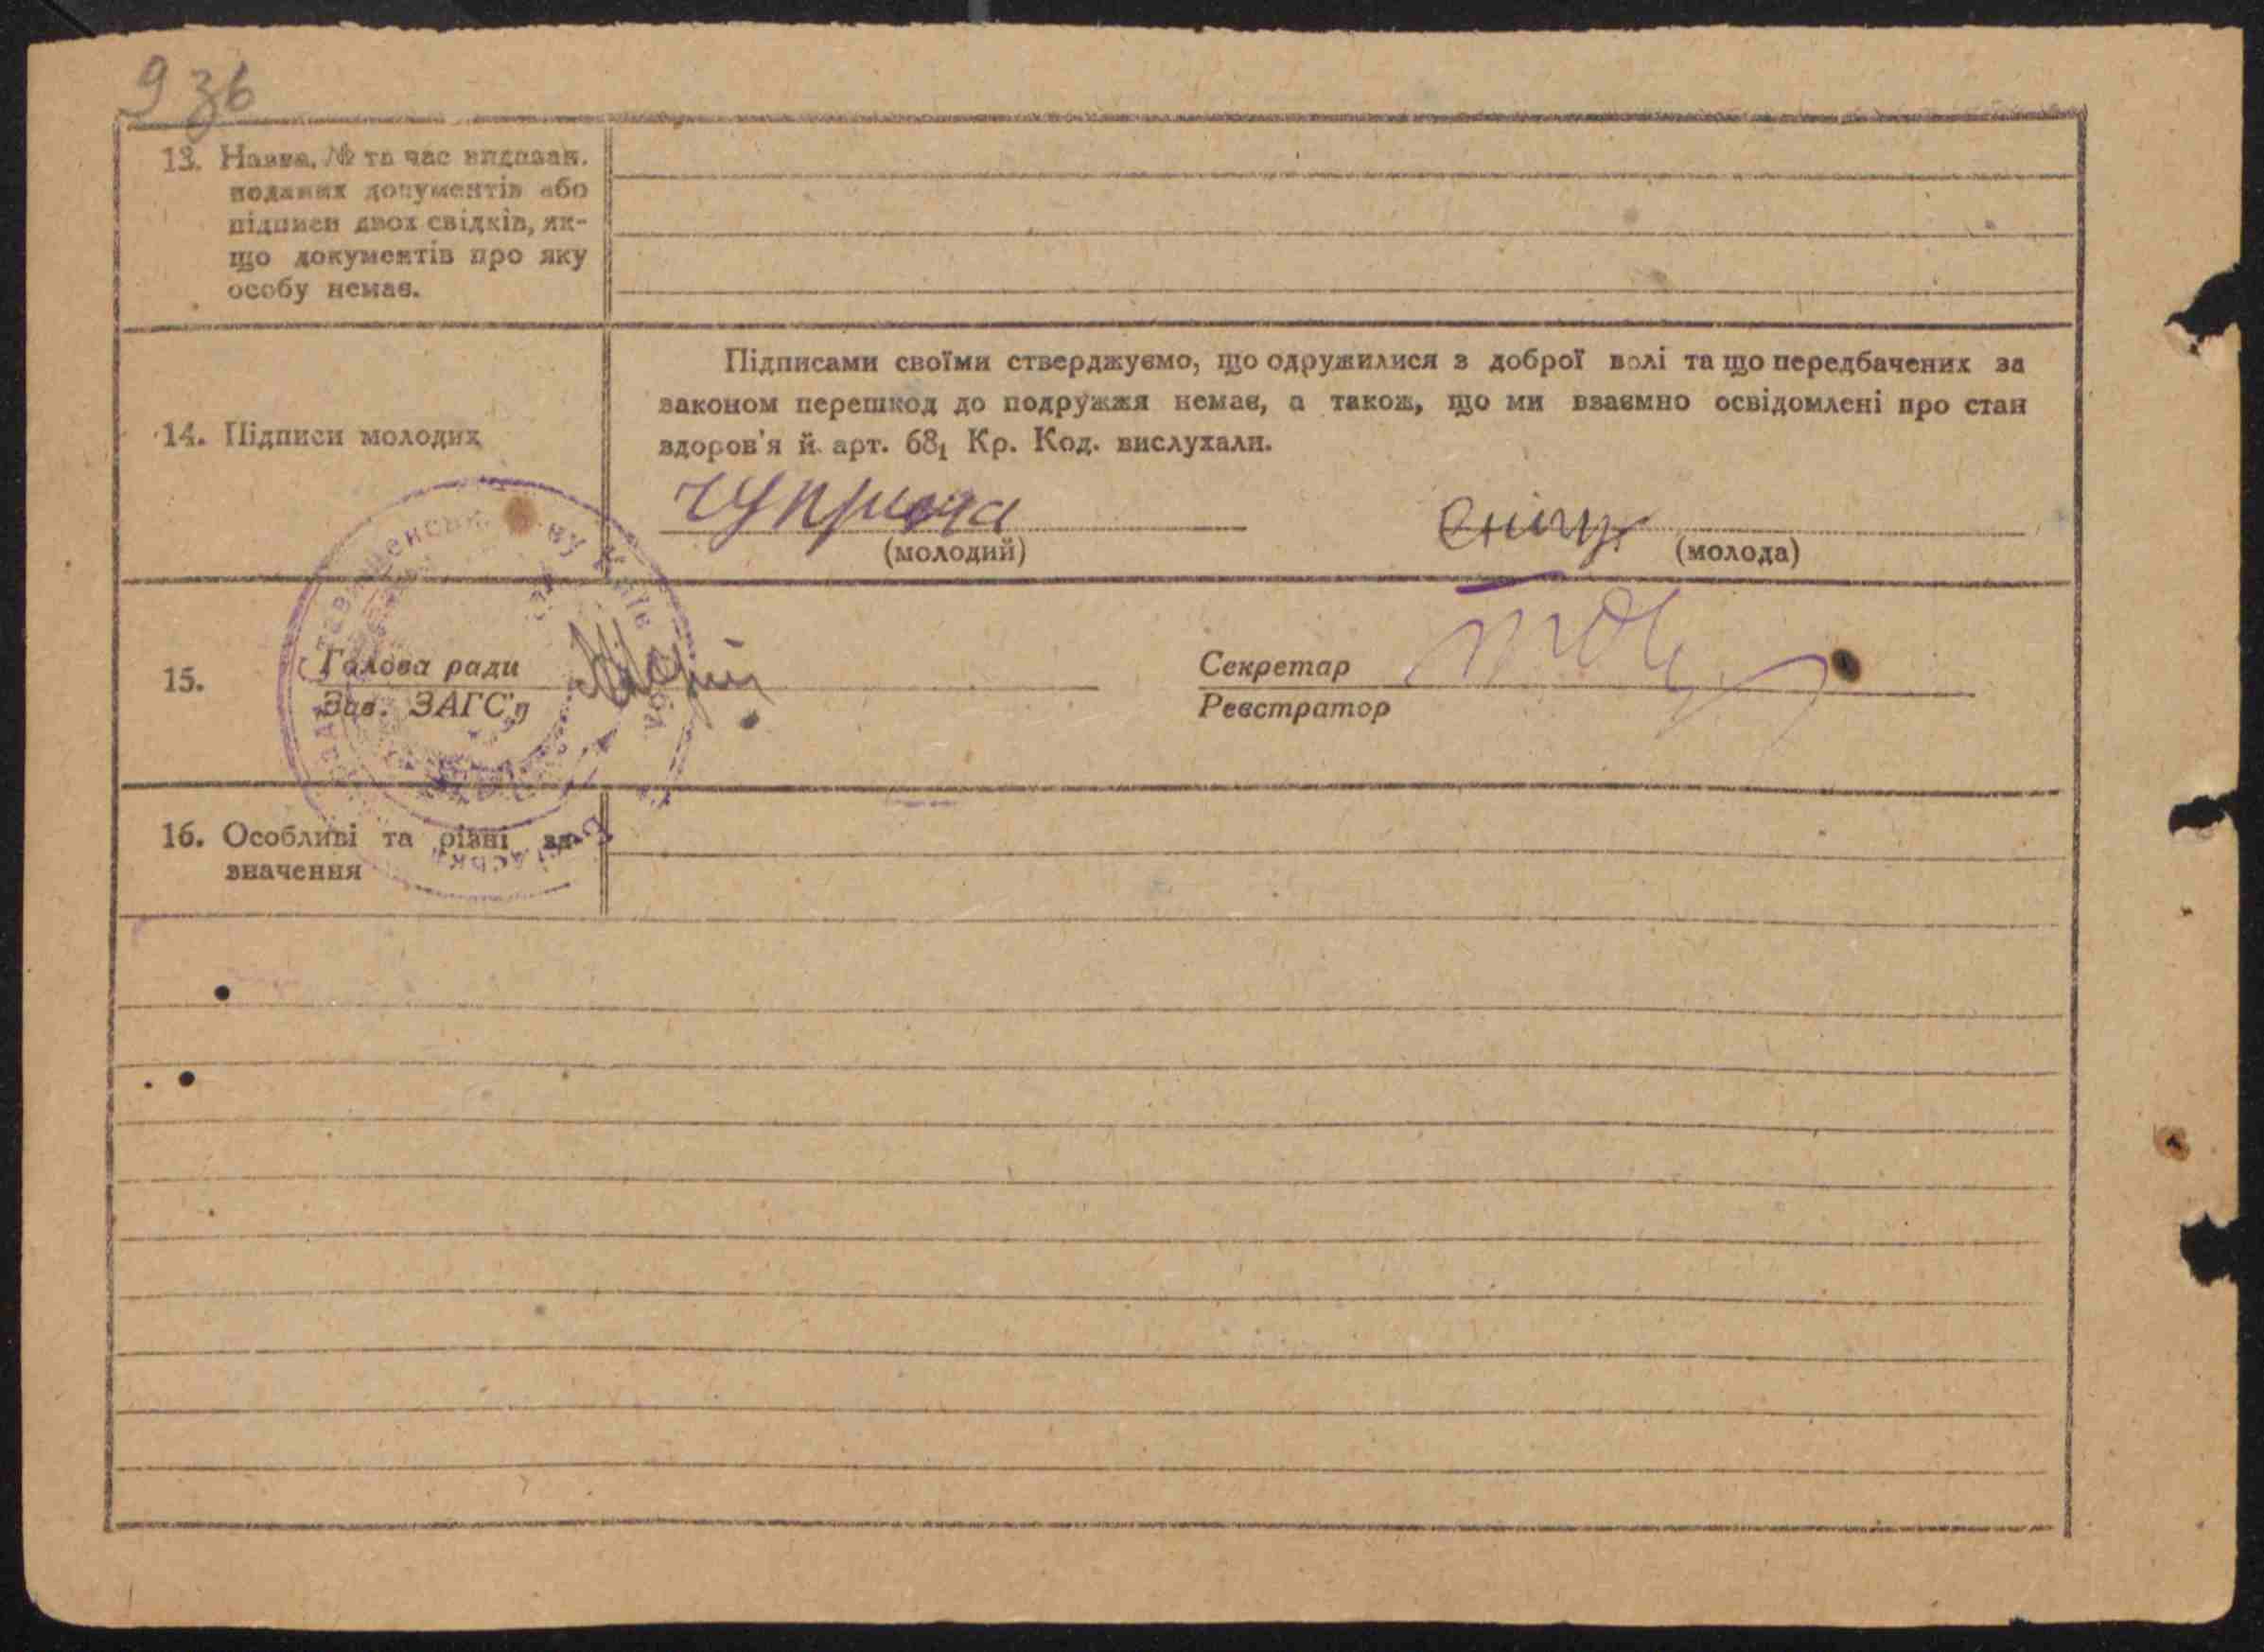 9 зв
13. Назва, № та час видаван.
поданих документів або
підписи двох свідків, як-
що документів про яку
особу немає.
14. Підписи молодих
Підписами своїми стверджуємо, що одружилися з доброї волі та що передбачених за
законом перешкод до подружжя немає, а також, що ми взаємно освідомлені про стан
здоров'я й арт. 68₁ Кр. Код. вислухали.
Чуприна
(молодий)
(молода)
15.
Голова ради
Зав. ЗАГС'у
Секретар
Реєстратор
16. Особливі та різні за-
значення